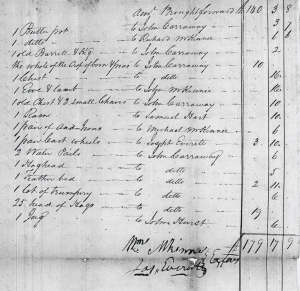 Amt Brought forward $ 140 3 8
1 Butter pot to John Carraway 3
1 ditto to Richard McKinne 1
1 old Barrell & Keg to John Carraway 2
the whole of the Crop of Corn & peas to John Carraway 10
1 Chest to ditto 16
1 Ewe & Lamb to John McKinne 10
1 old Chest & 2 Small Chairs to John Carraway 10
1 Razor to Samuel Hart 10
1 pair of Sad Irons to Michael McKinne 6
1 pair Cart wheels to Joseph Everett 3 10
2 Water Pails to John Carraway 6
1 Hogshead to ditto 5
1 Feather bed to ditto 2 11
1 Lot of Trumpery to ditto 6
25 head of Hogs to ditto 19
1 Jug to John Hurst 6
Wm McKinne
Jos. Everett Exrs
£ 179 7 9